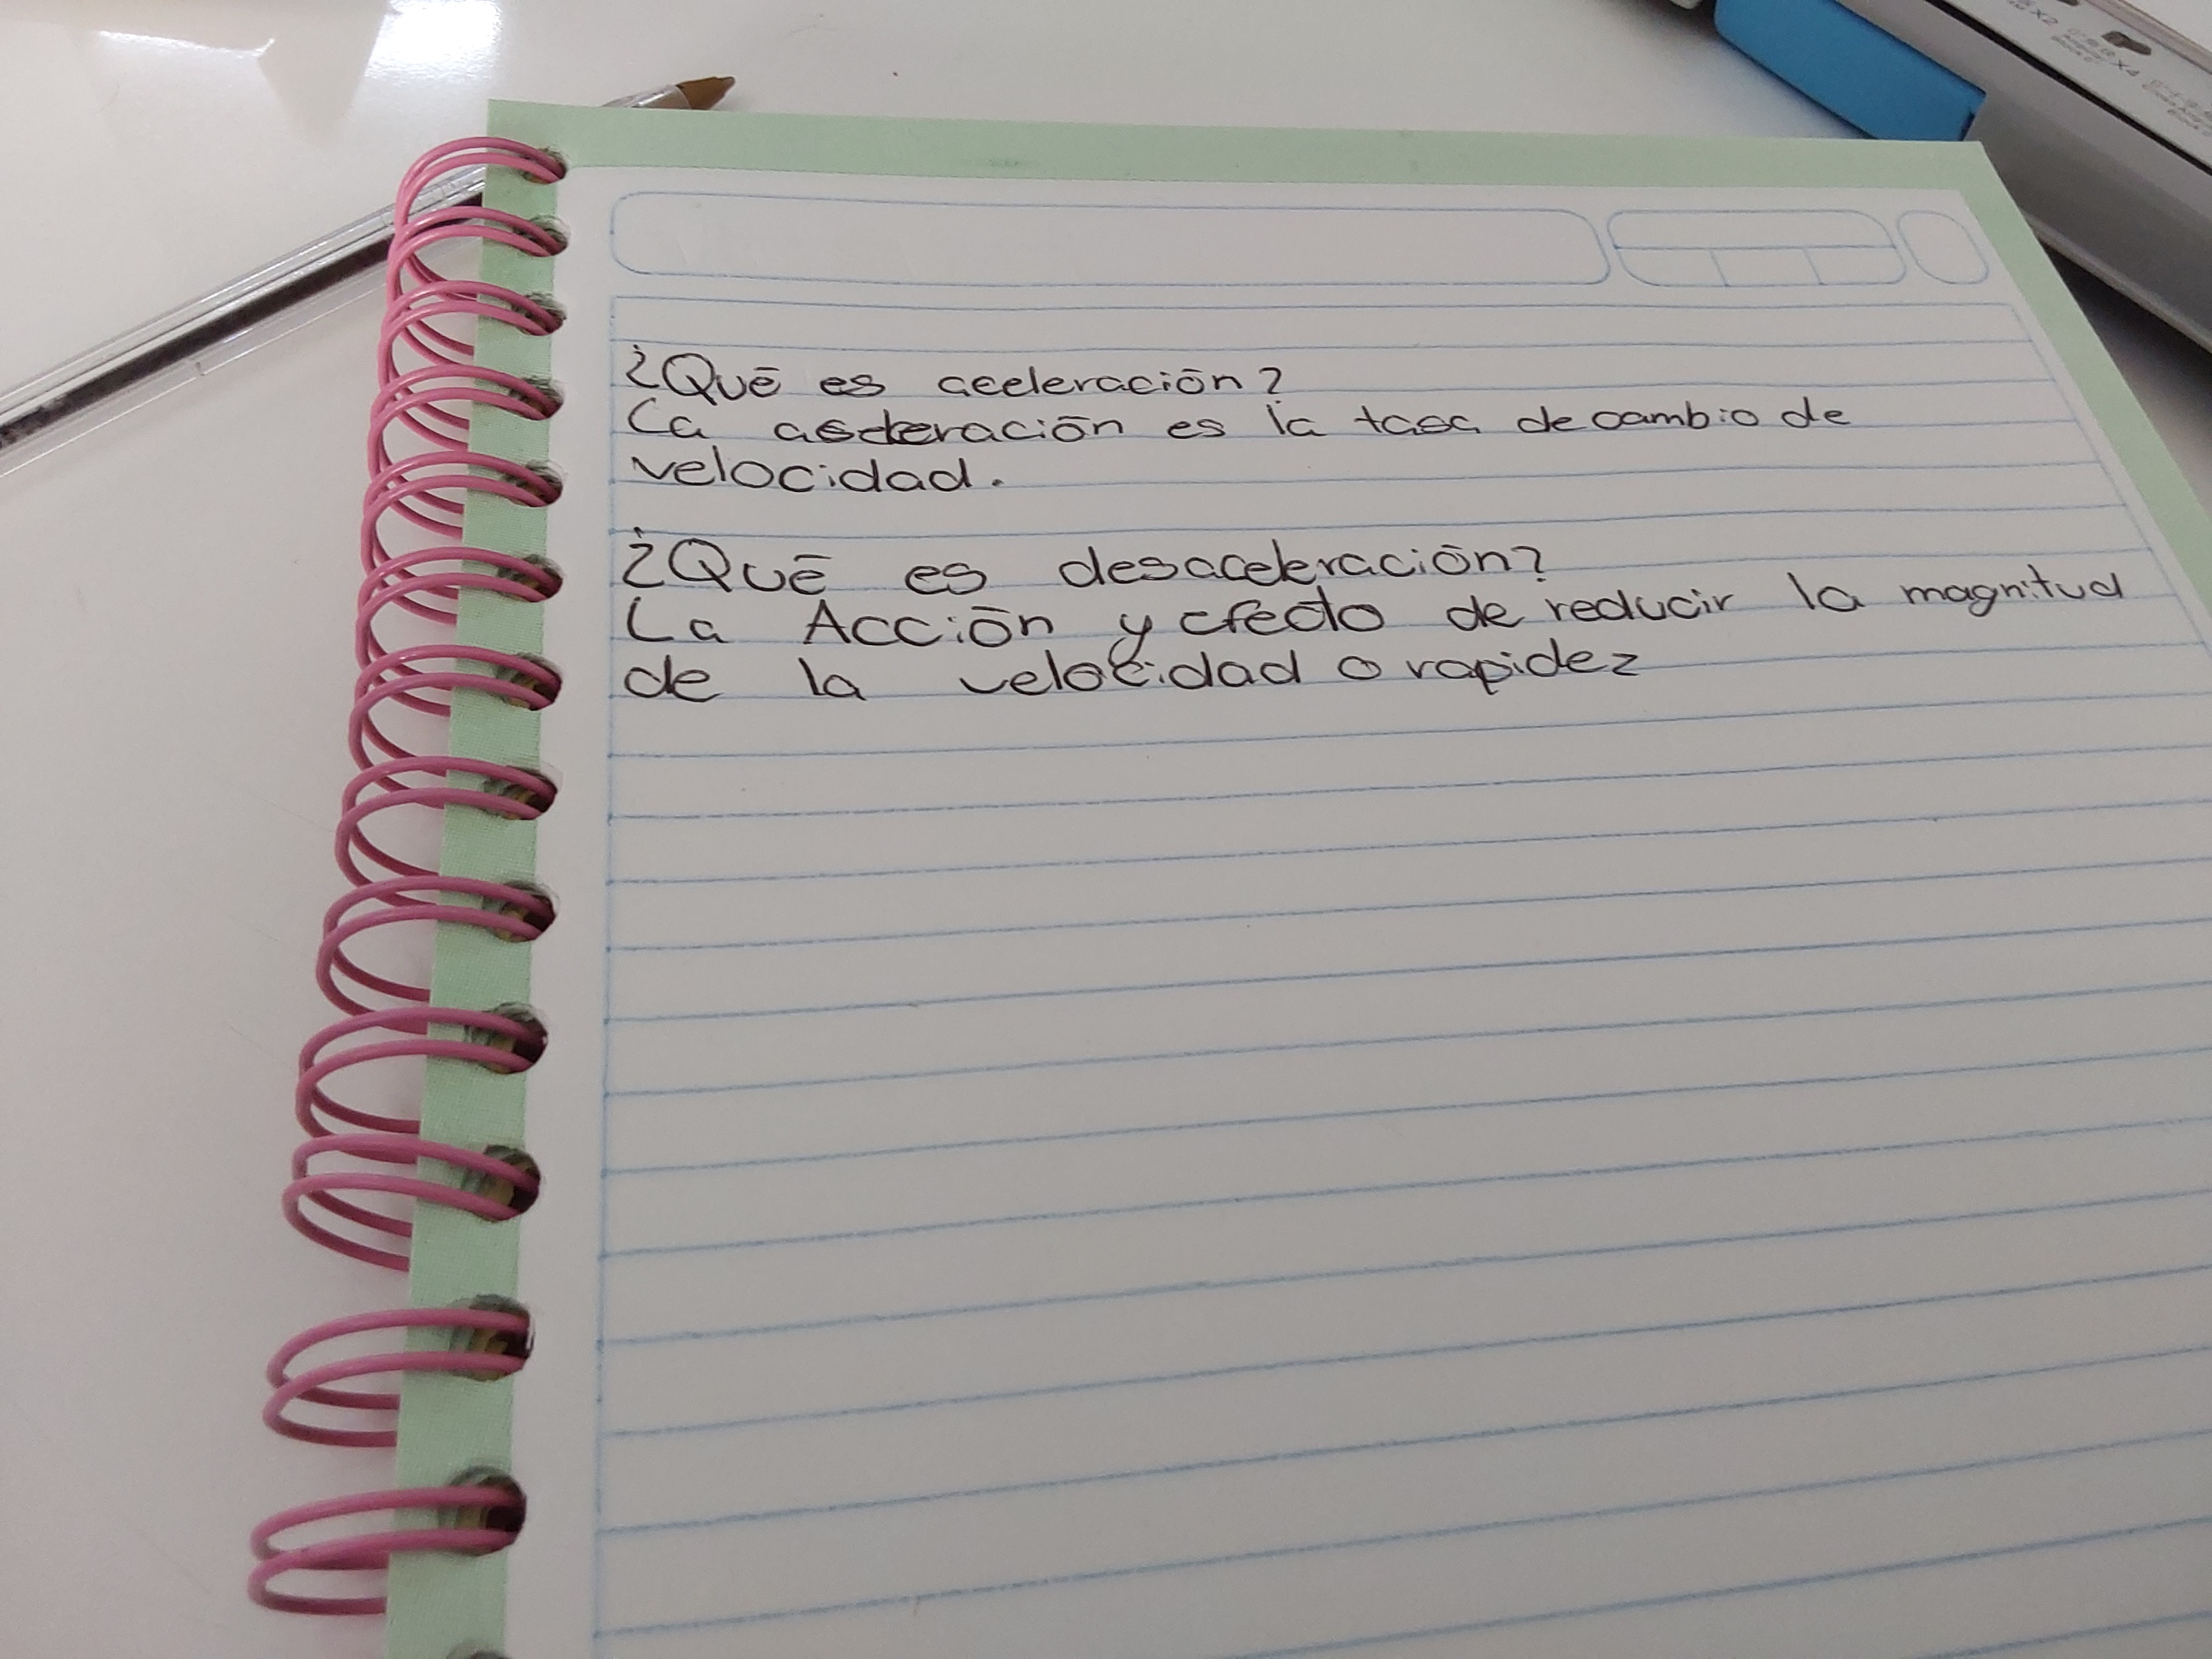 ¿Qué es aceleración?
La aceleración es la tasa de cambio de
velocidad.
¿Qué es desaceleración?
La Acción y efecto de reducir la magnitud
de la velocidad o rapidez